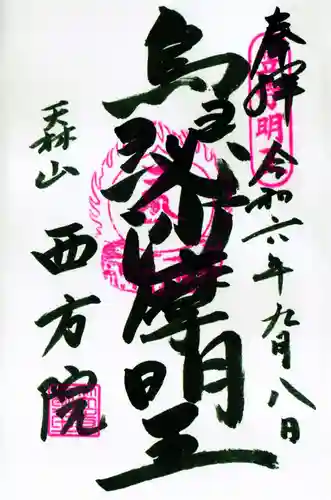 奉拝 令和六年九月八日
烏 沙摩明王
天林山
西方院